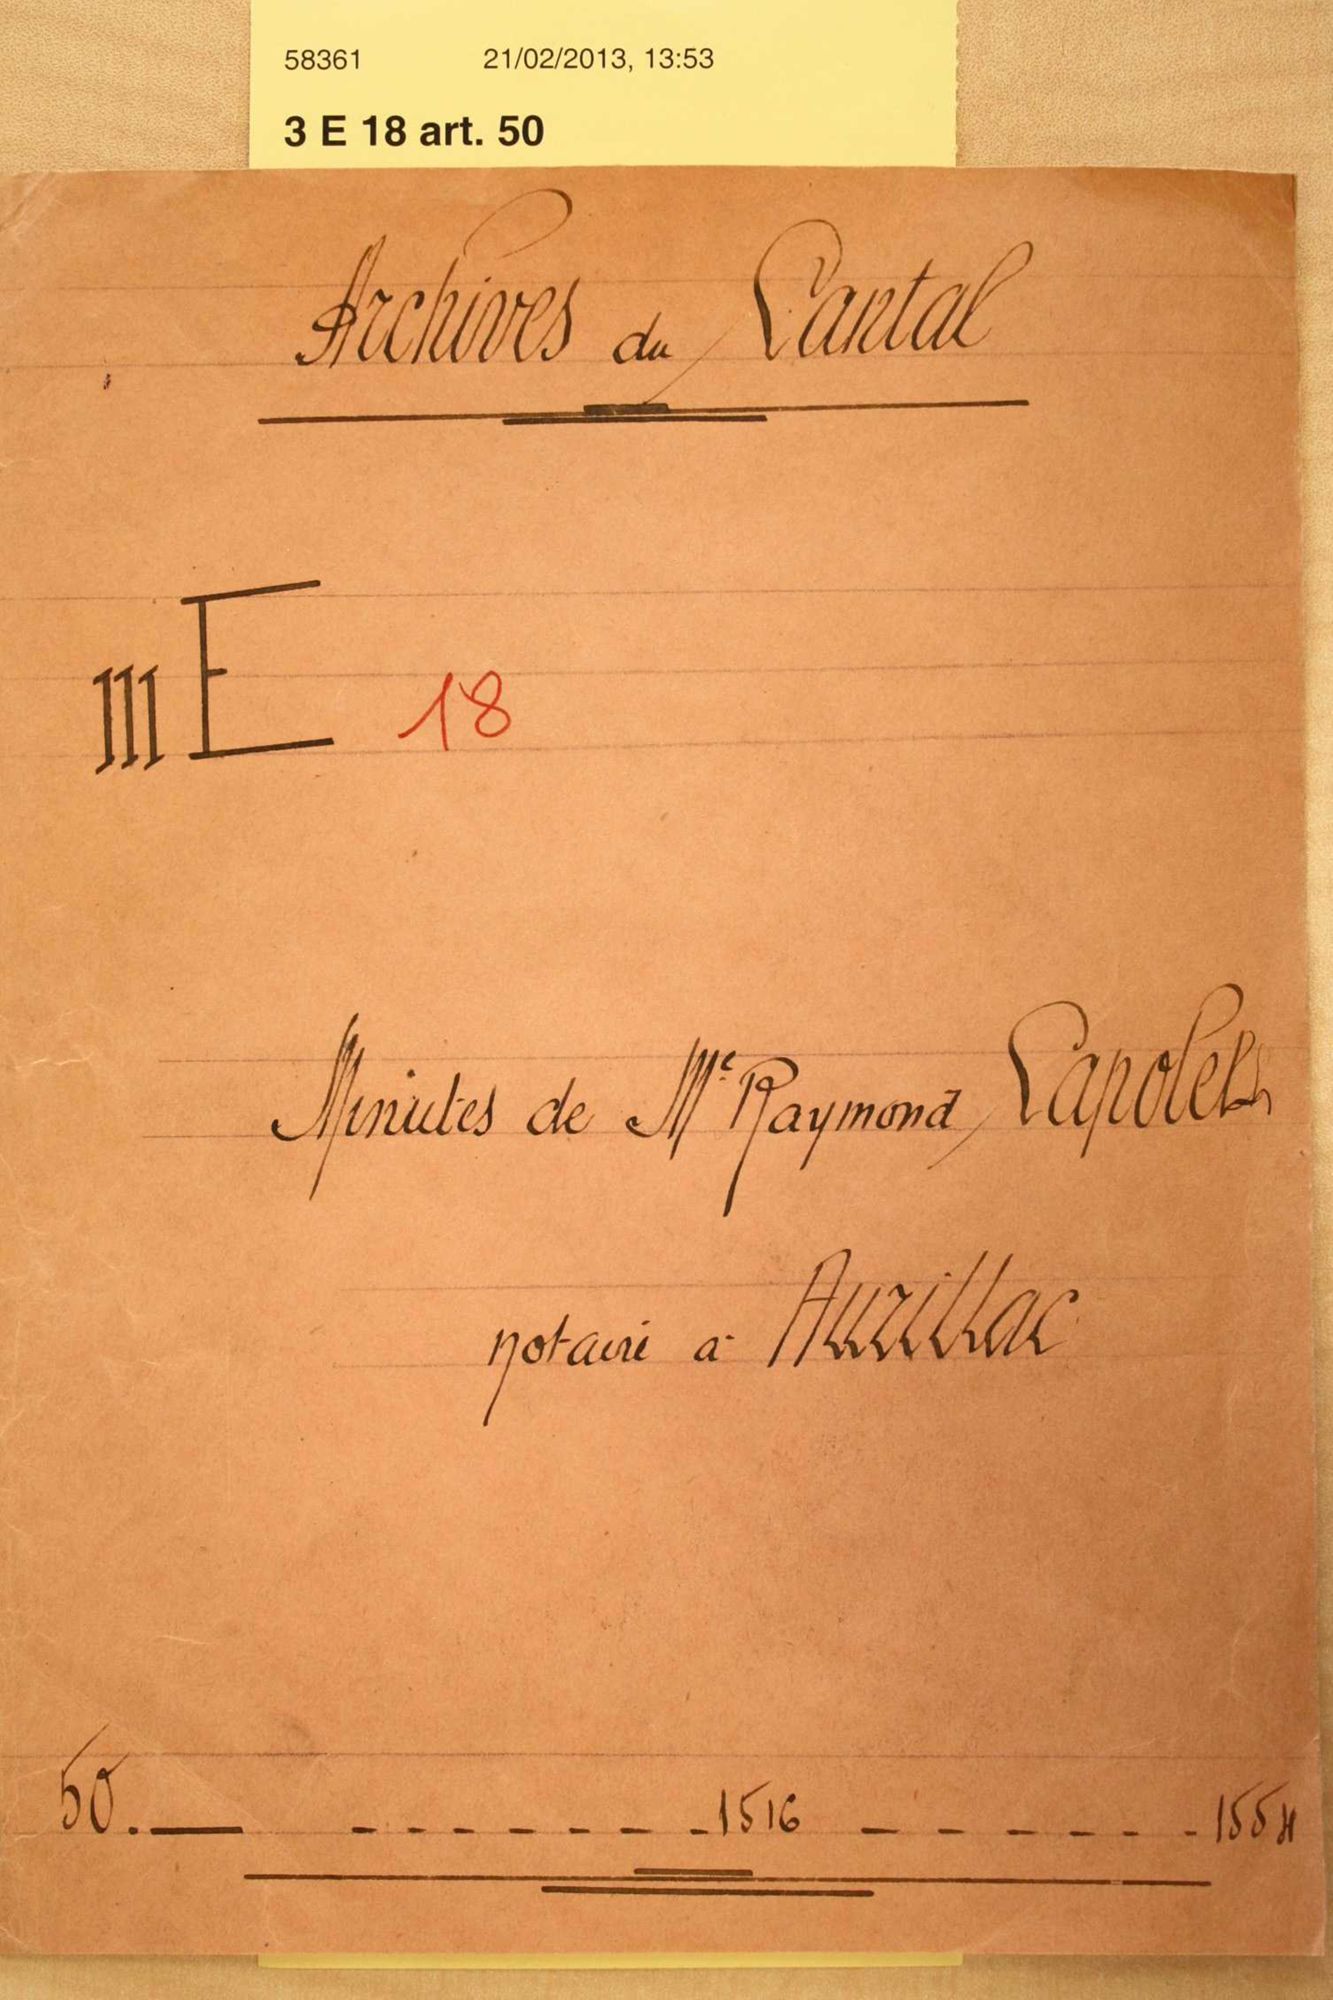 58361 21/02/2013, 13:53
3 E 18 art. 50
Archives du Cantal
III E 18
Minutes de Me Raymond
notaire à Aurillac
50. 1516